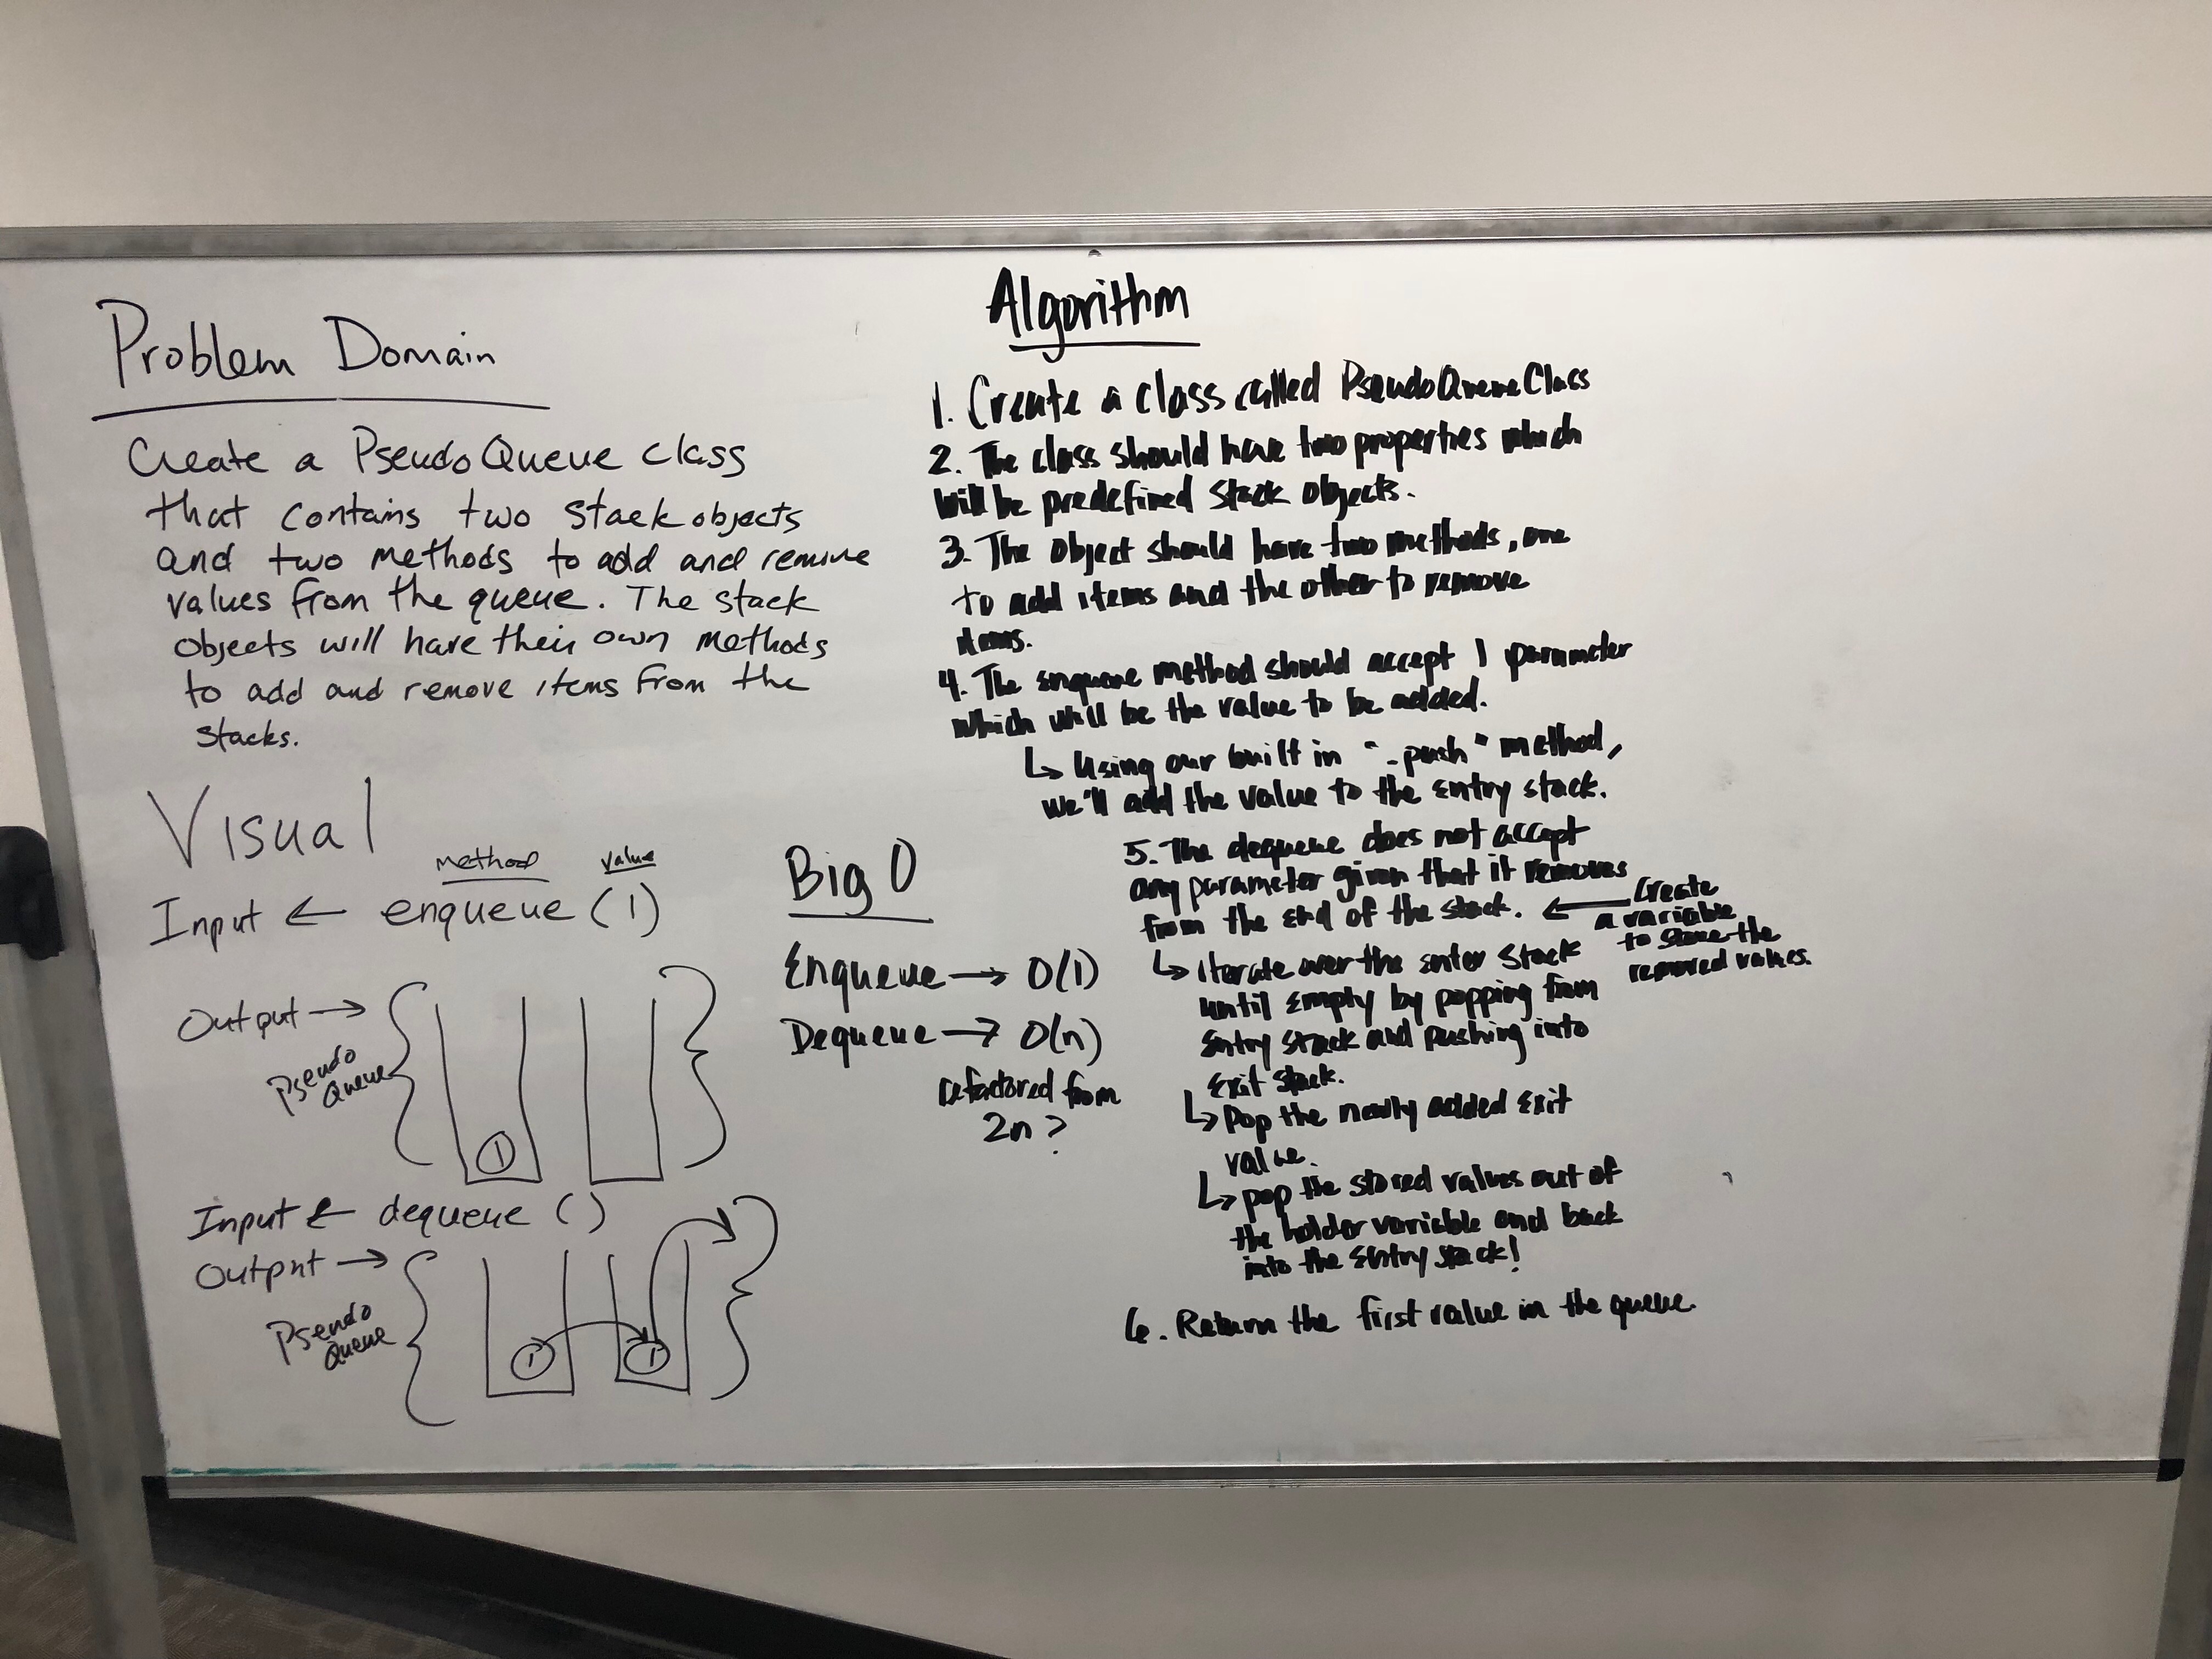 Problem Domain
Create a PseudoQueue class
that contains two stack objects
and two methods to add and remove
values from the queue. The stack
objects will have their own methods
to add and remove items from the
stacks.
Visual
method value
Input ← enqueue (1)
Output →
Pseudo
Queue
1
Input ← dequeue ()
Output →
Pseudo
Queue
1 1
Big O
Enqueue → O(1)
Dequeue → O(n)
refactored from
2n?
Algorithm
1. Create a class called PseudoQueueClass
2. The class should have two properties which
will be predefined stack objects.
3. The object should have two methods, one
to add items and the other to remove
items.
4. The enqueue method should accept 1 parameter
which will be the value to be added.
↳ Using our built in ".push" method,
we'll add the value to the entry stack.
5. The dequeue does not accept
any parameter given that it removes
from the end of the stack. ←
Create
a variable
to store the
removed values.
↳ iterate over the enter stack
until empty by popping from
entry stack and pushing into
exit stack.
↳ Pop the newly added exit
value.
↳ pop the stored values out of
the holder variable and back
into the entry stack!
6. Return the first value in the queue.